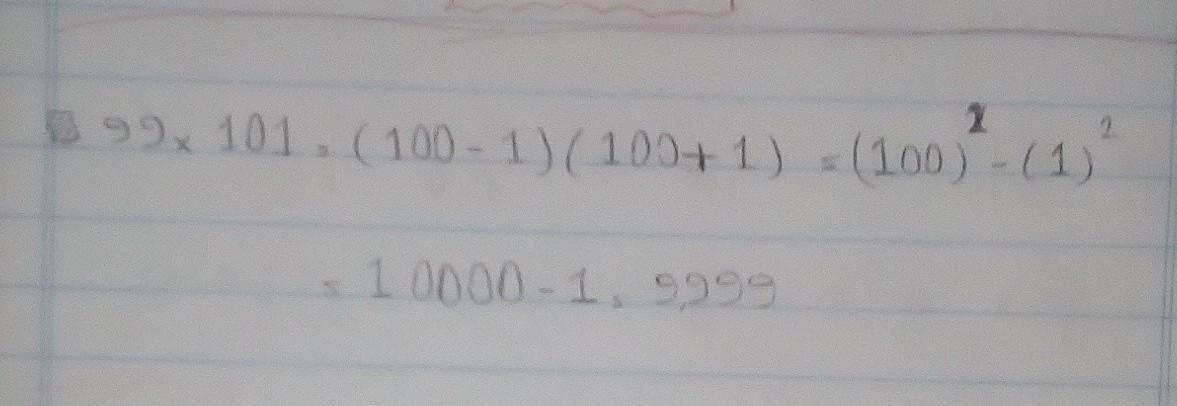 99 x 101 = (100 - 1)(100 + 1) = (100)² - (1)²
= 10000 - 1 = 9999